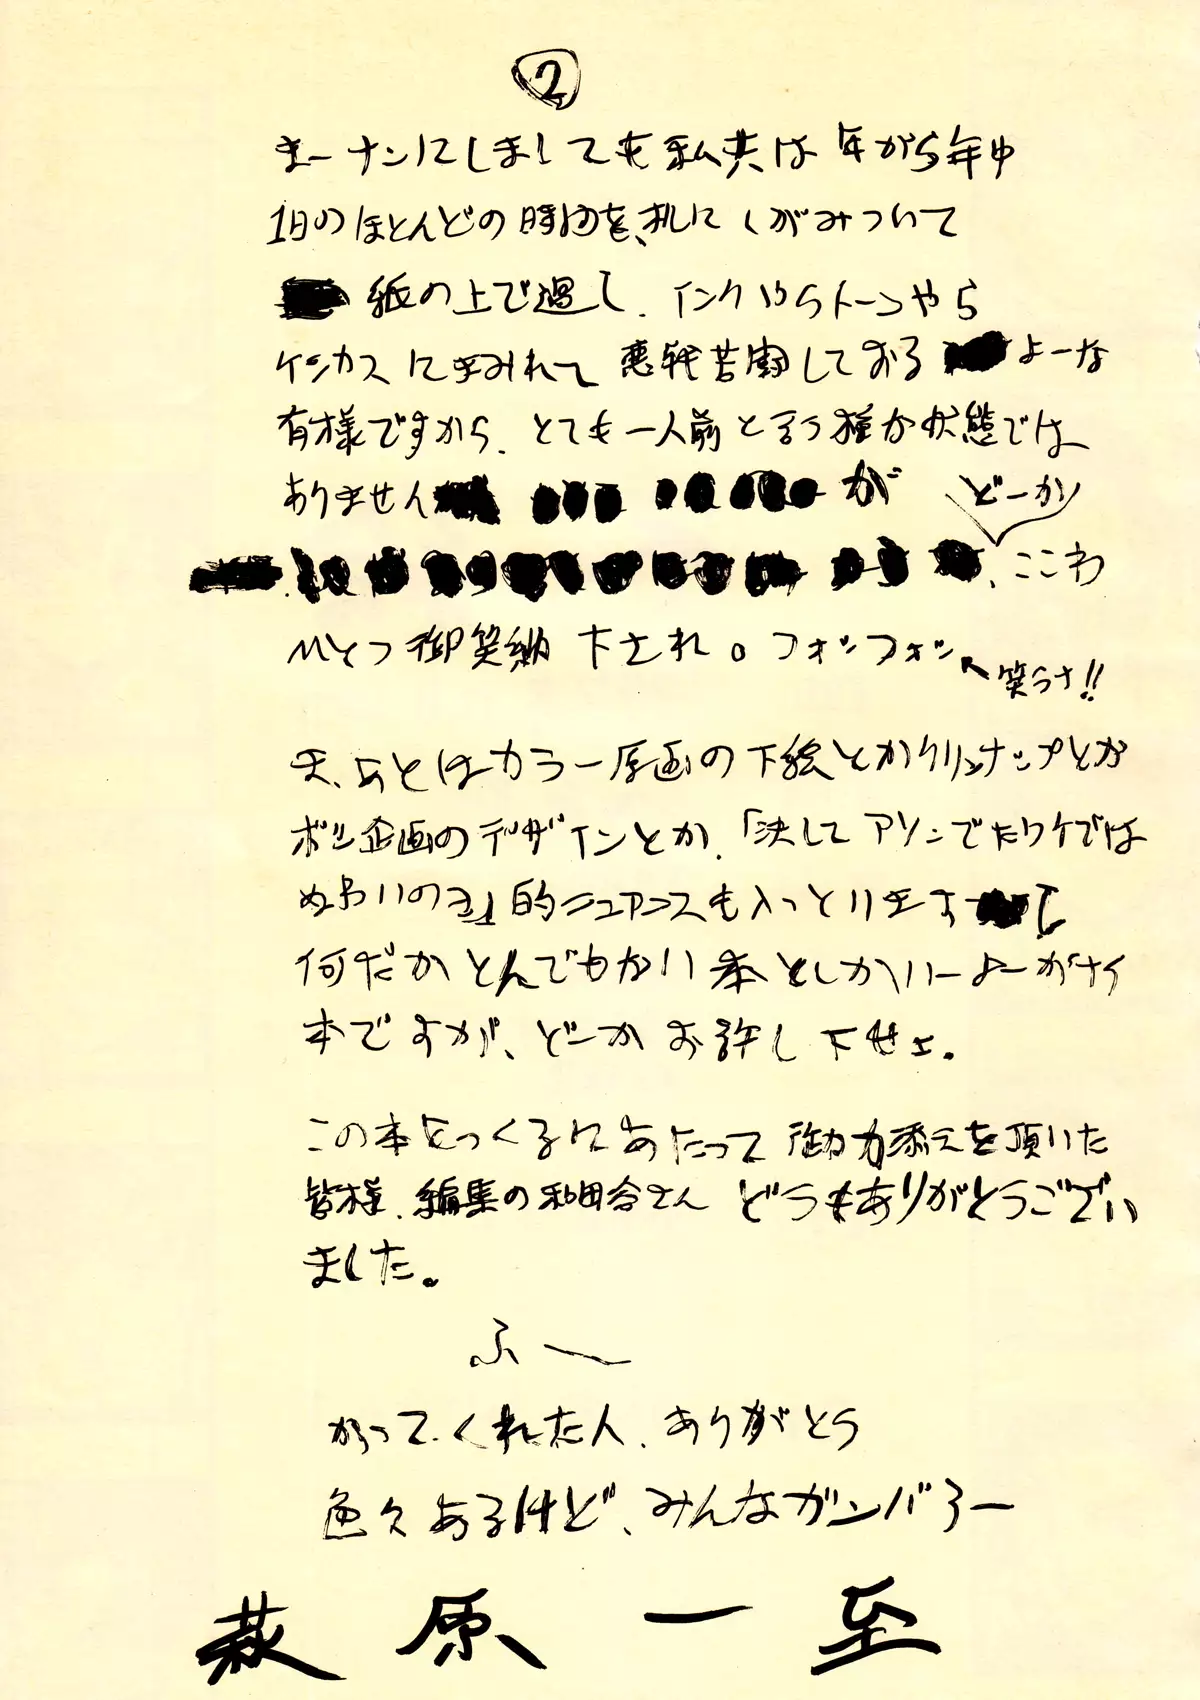 ②
まーナンにしましても私共は年がら年中
1日のほとんどの時間を、机にくがみついて
紙の上で過し、インクやらトーンやら
ケシカスにまみれて悪戦苦闘しておるよーな
有様ですから、とても一人前と言う種な状態では
ありませんが どーか
、ここわ
ひとつ御笑納下され。フォンフォン ←笑うナ!!
ま、あとはカラー原画の下絵とかクリンナップとか
ボツ企画のデザインとか、「決してアソンでたワケでは
ぬぁいのョ」的ニュアンスも入っとりまして
何だかとんでもない本としかいーよーがナイ
本ですが、どーかお許し下せェ。
この本をつくるにあたって御力添えを頂いた
皆様、編集の和田会さんどうもありがとうござい
ました。
ふ〜
かってくれた人、ありがとう
色々あるけど、みんなガンバろー
萩原一至